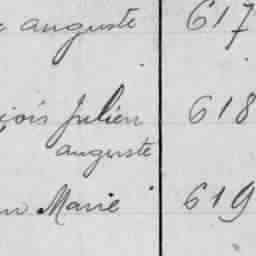 auguste 617
çois Julien 618
auguste
Marie 619